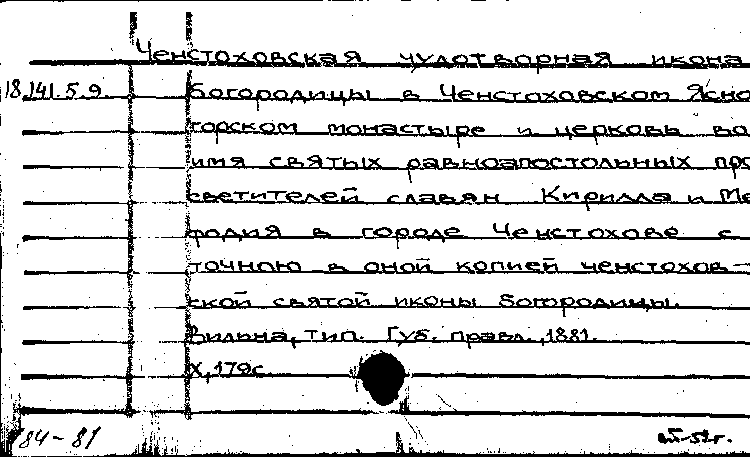 Ченстоховская чудотворная икона
18.141.5.9. Богородицы в Ченстоховском Ясно
горском монастыре и церковь во
имя святых равноапостольных про
светителей славян Кирилла и Ме
фодия в городе Ченстохове с
точною в оной копией ченстохов-
ской святой иконы Богородицы.
Вильна, тип. Губ. правл., 1881.
X, 179с.
84-81